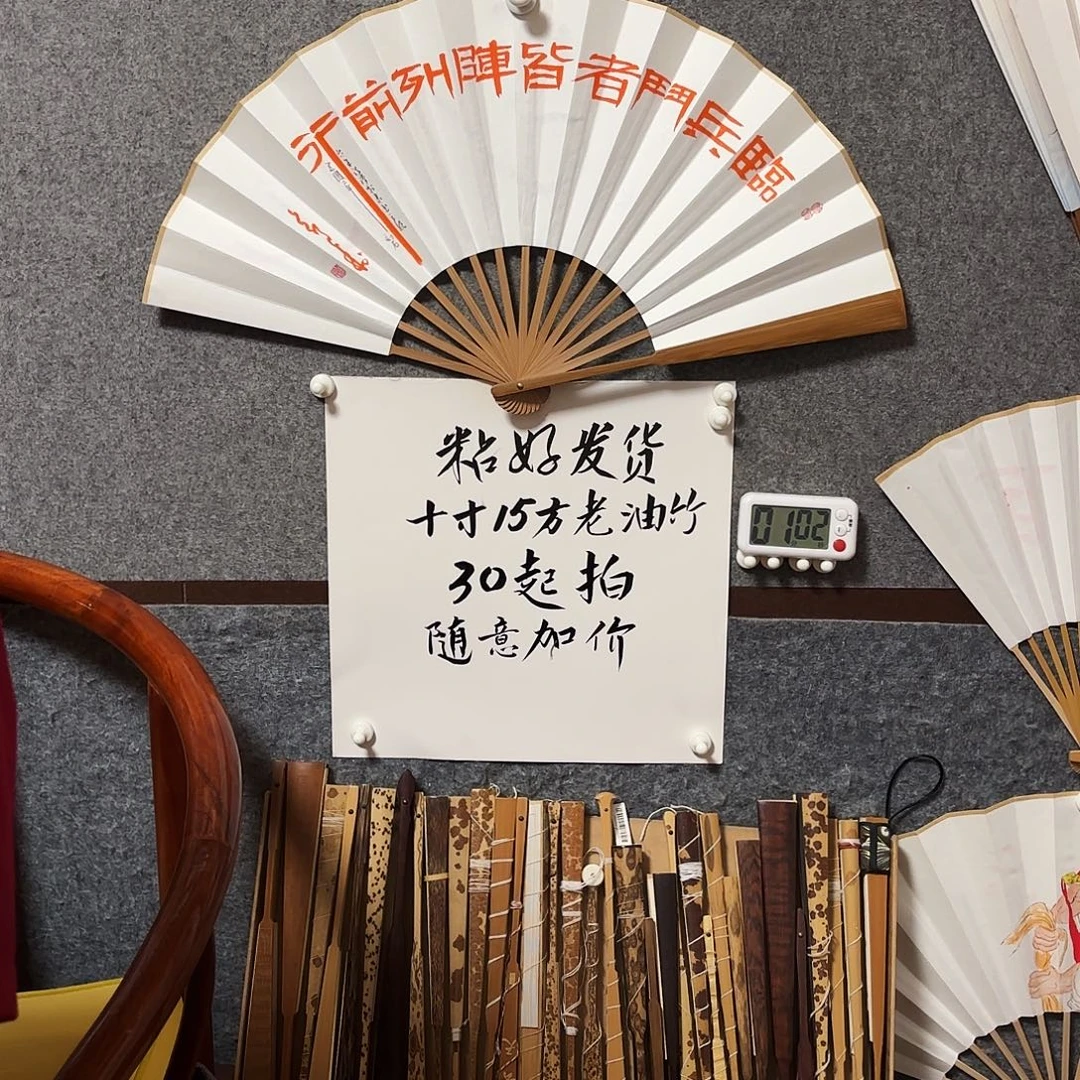 臨兵鬥者皆陣列前行
粘好发货
十寸15方老油竹
30起拍
随意加价
0102